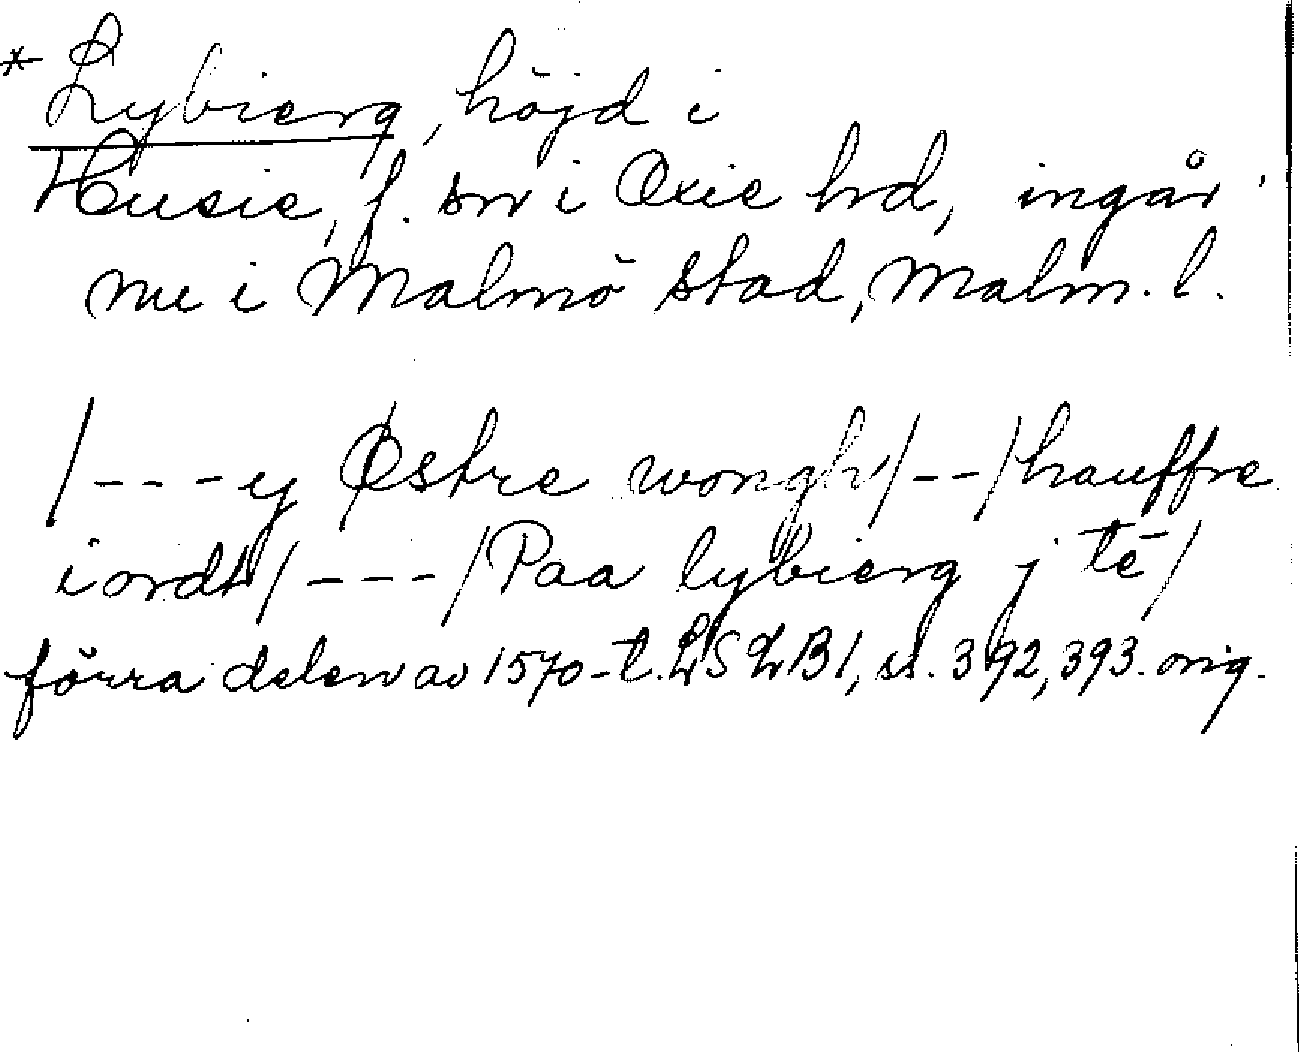 * Lybierg, höjd i
Husie, f. sn i Oxie hd, ingår
nu i Malmö stad, Malm. l.
/---y Østre wongh/--/hauffre
iordt/---/Paa lybierg j tē/
förra delen av 1570-t. LSLB1, ss. 392, 393. orig.